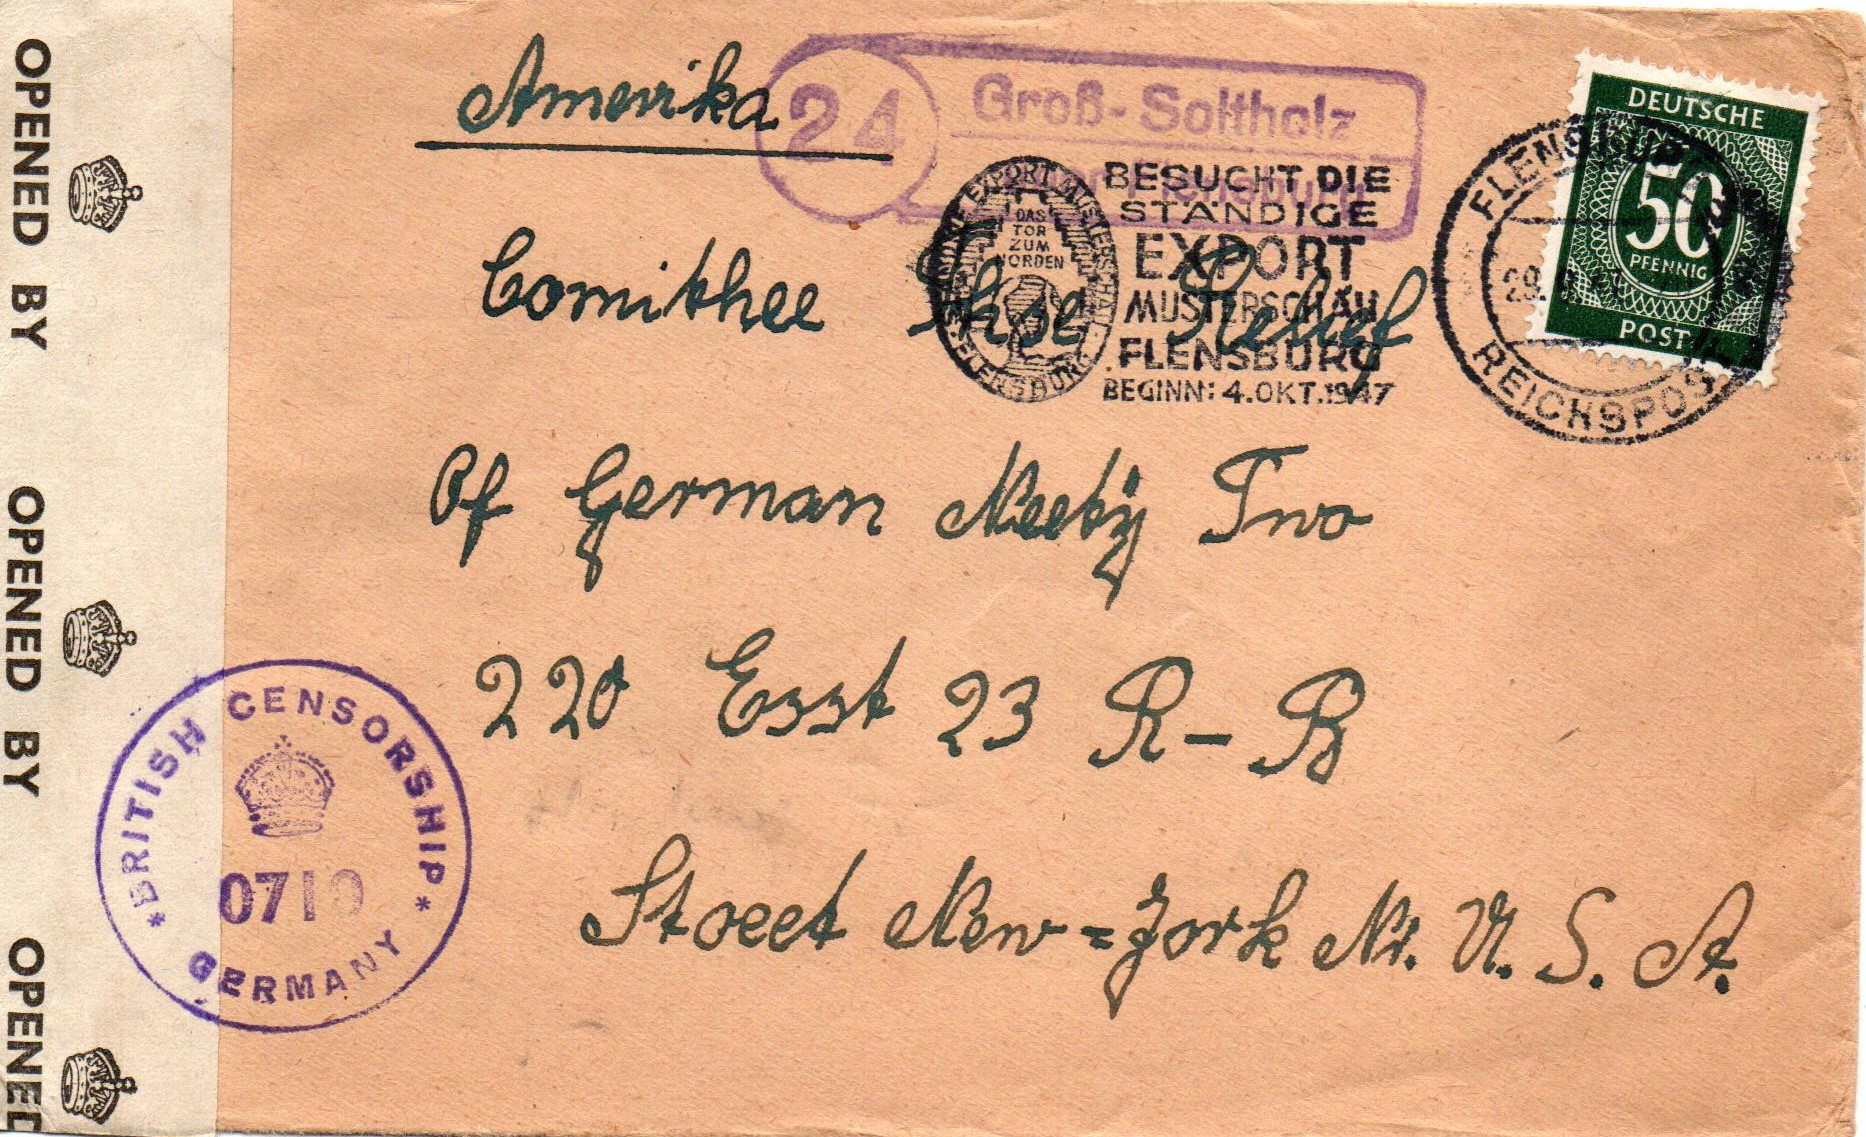 OPENED BY
OPENED BY
OPENED
Amerika
24
Groß-Soltholz
DEUTSCHE
50
PFENNIG
POST
FLENSBURG
29.
REICHSPOST
EXPORT MUSTERSCHAU
FLENSBURG
DAS
TOR
ZUM
NORDEN
BESUCHT DIE
STÄNDIGE
EXPORT
MUSTERSCHAU
FLENSBURG
BEGINN: 4.OKT.1947
Comithee Relief
Of German Neety Two
220 Esst 23 R-B
Stoeet New=York Nr. U. S. A.
BRITISH CENSORSHIP
0710
GERMANY